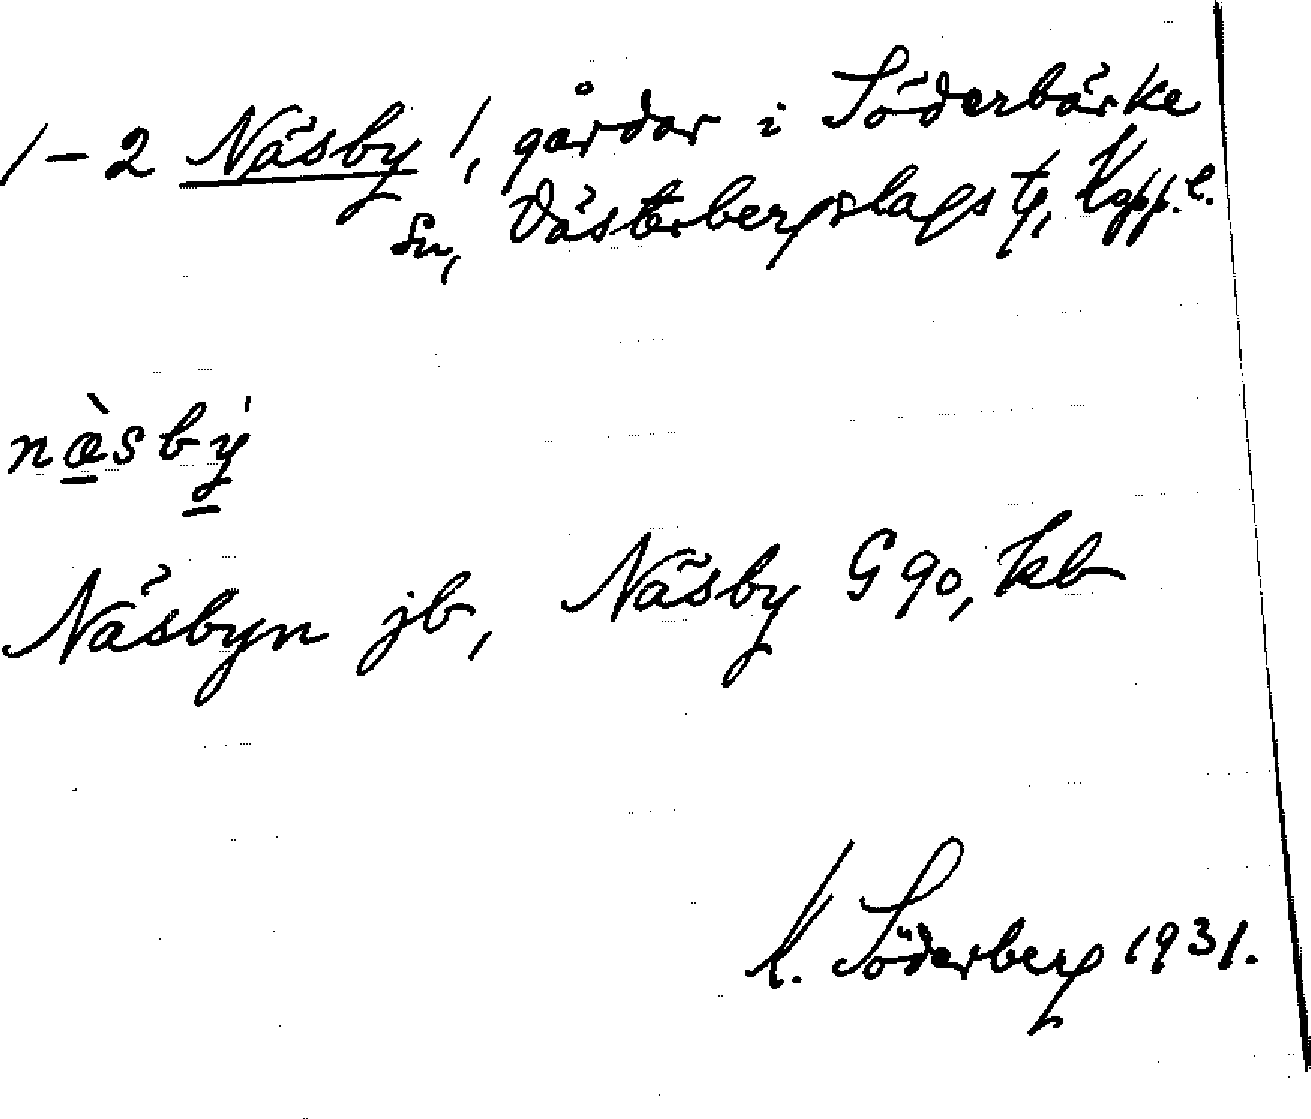 1-2 Näsby 1, gårdar i Söderbärke
sn, Västerbergslags tg, Kopp. l.
næ̀sbý
Näsbyn jb, Näsby G 90, kb
K. Söderberg 1931.